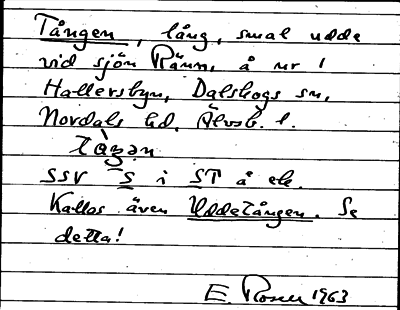 Tången, lång, smal udde
vid sjön Ränn, å nr 1
Hallersbyn, Dalskogs sn,
Nordals hd, Älvsb. l.
tàŋən
SSV S i ST å ek.
Kallas även Uddetången. Se
detta!
E. Rosen 1963